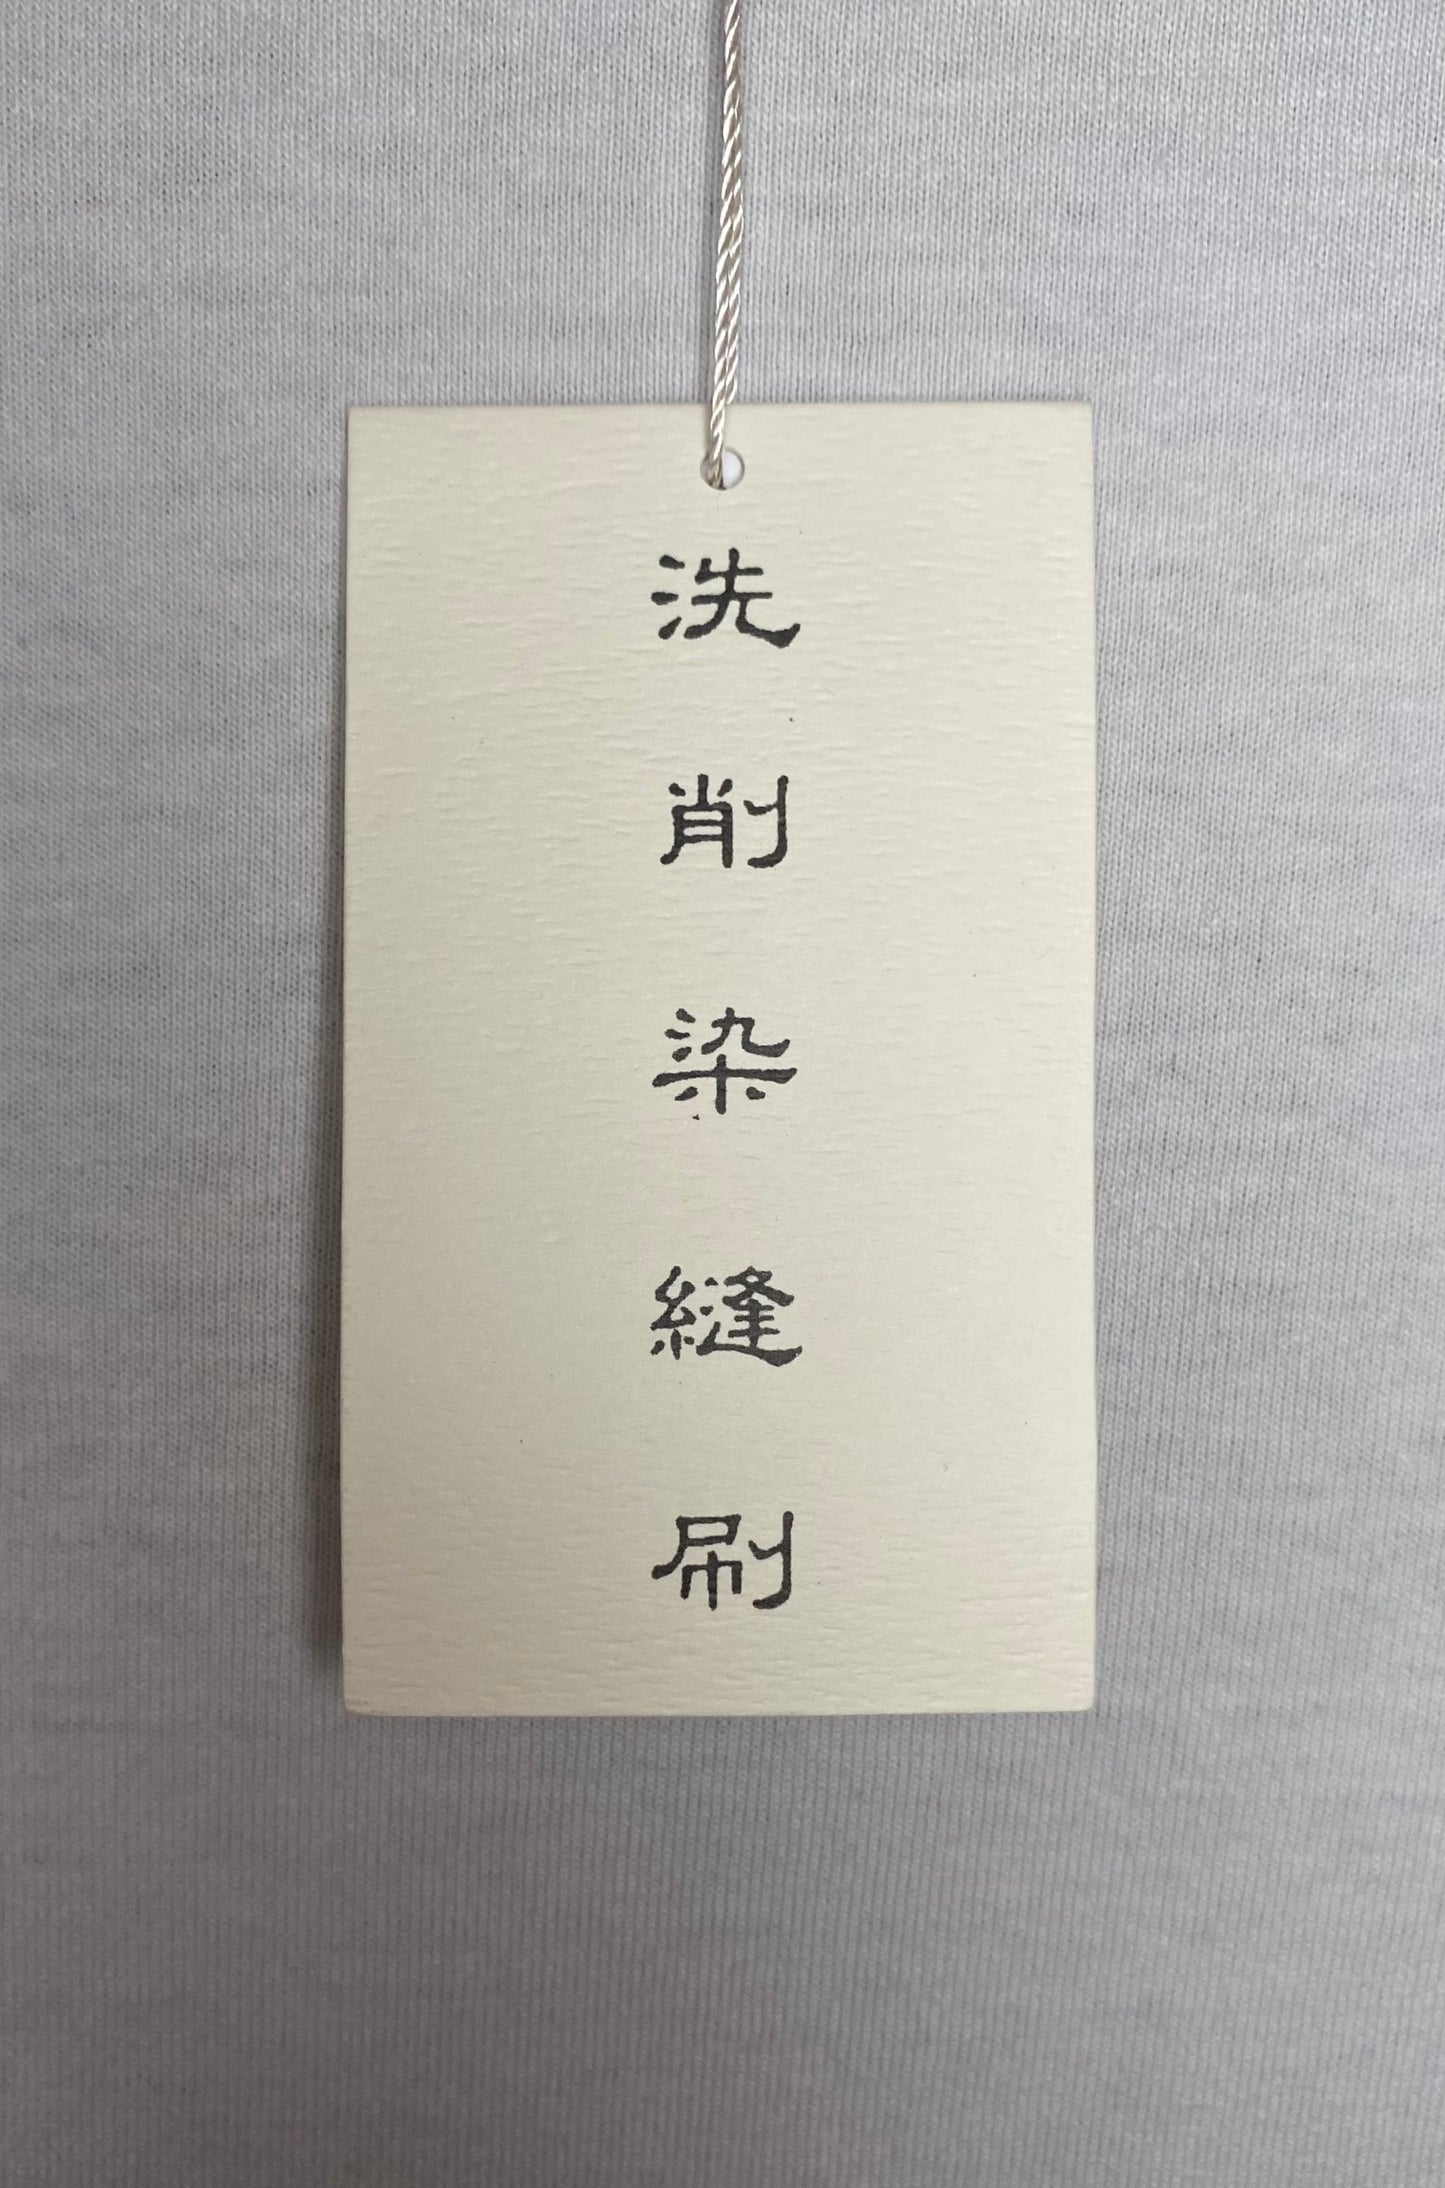 洗削染縫刷